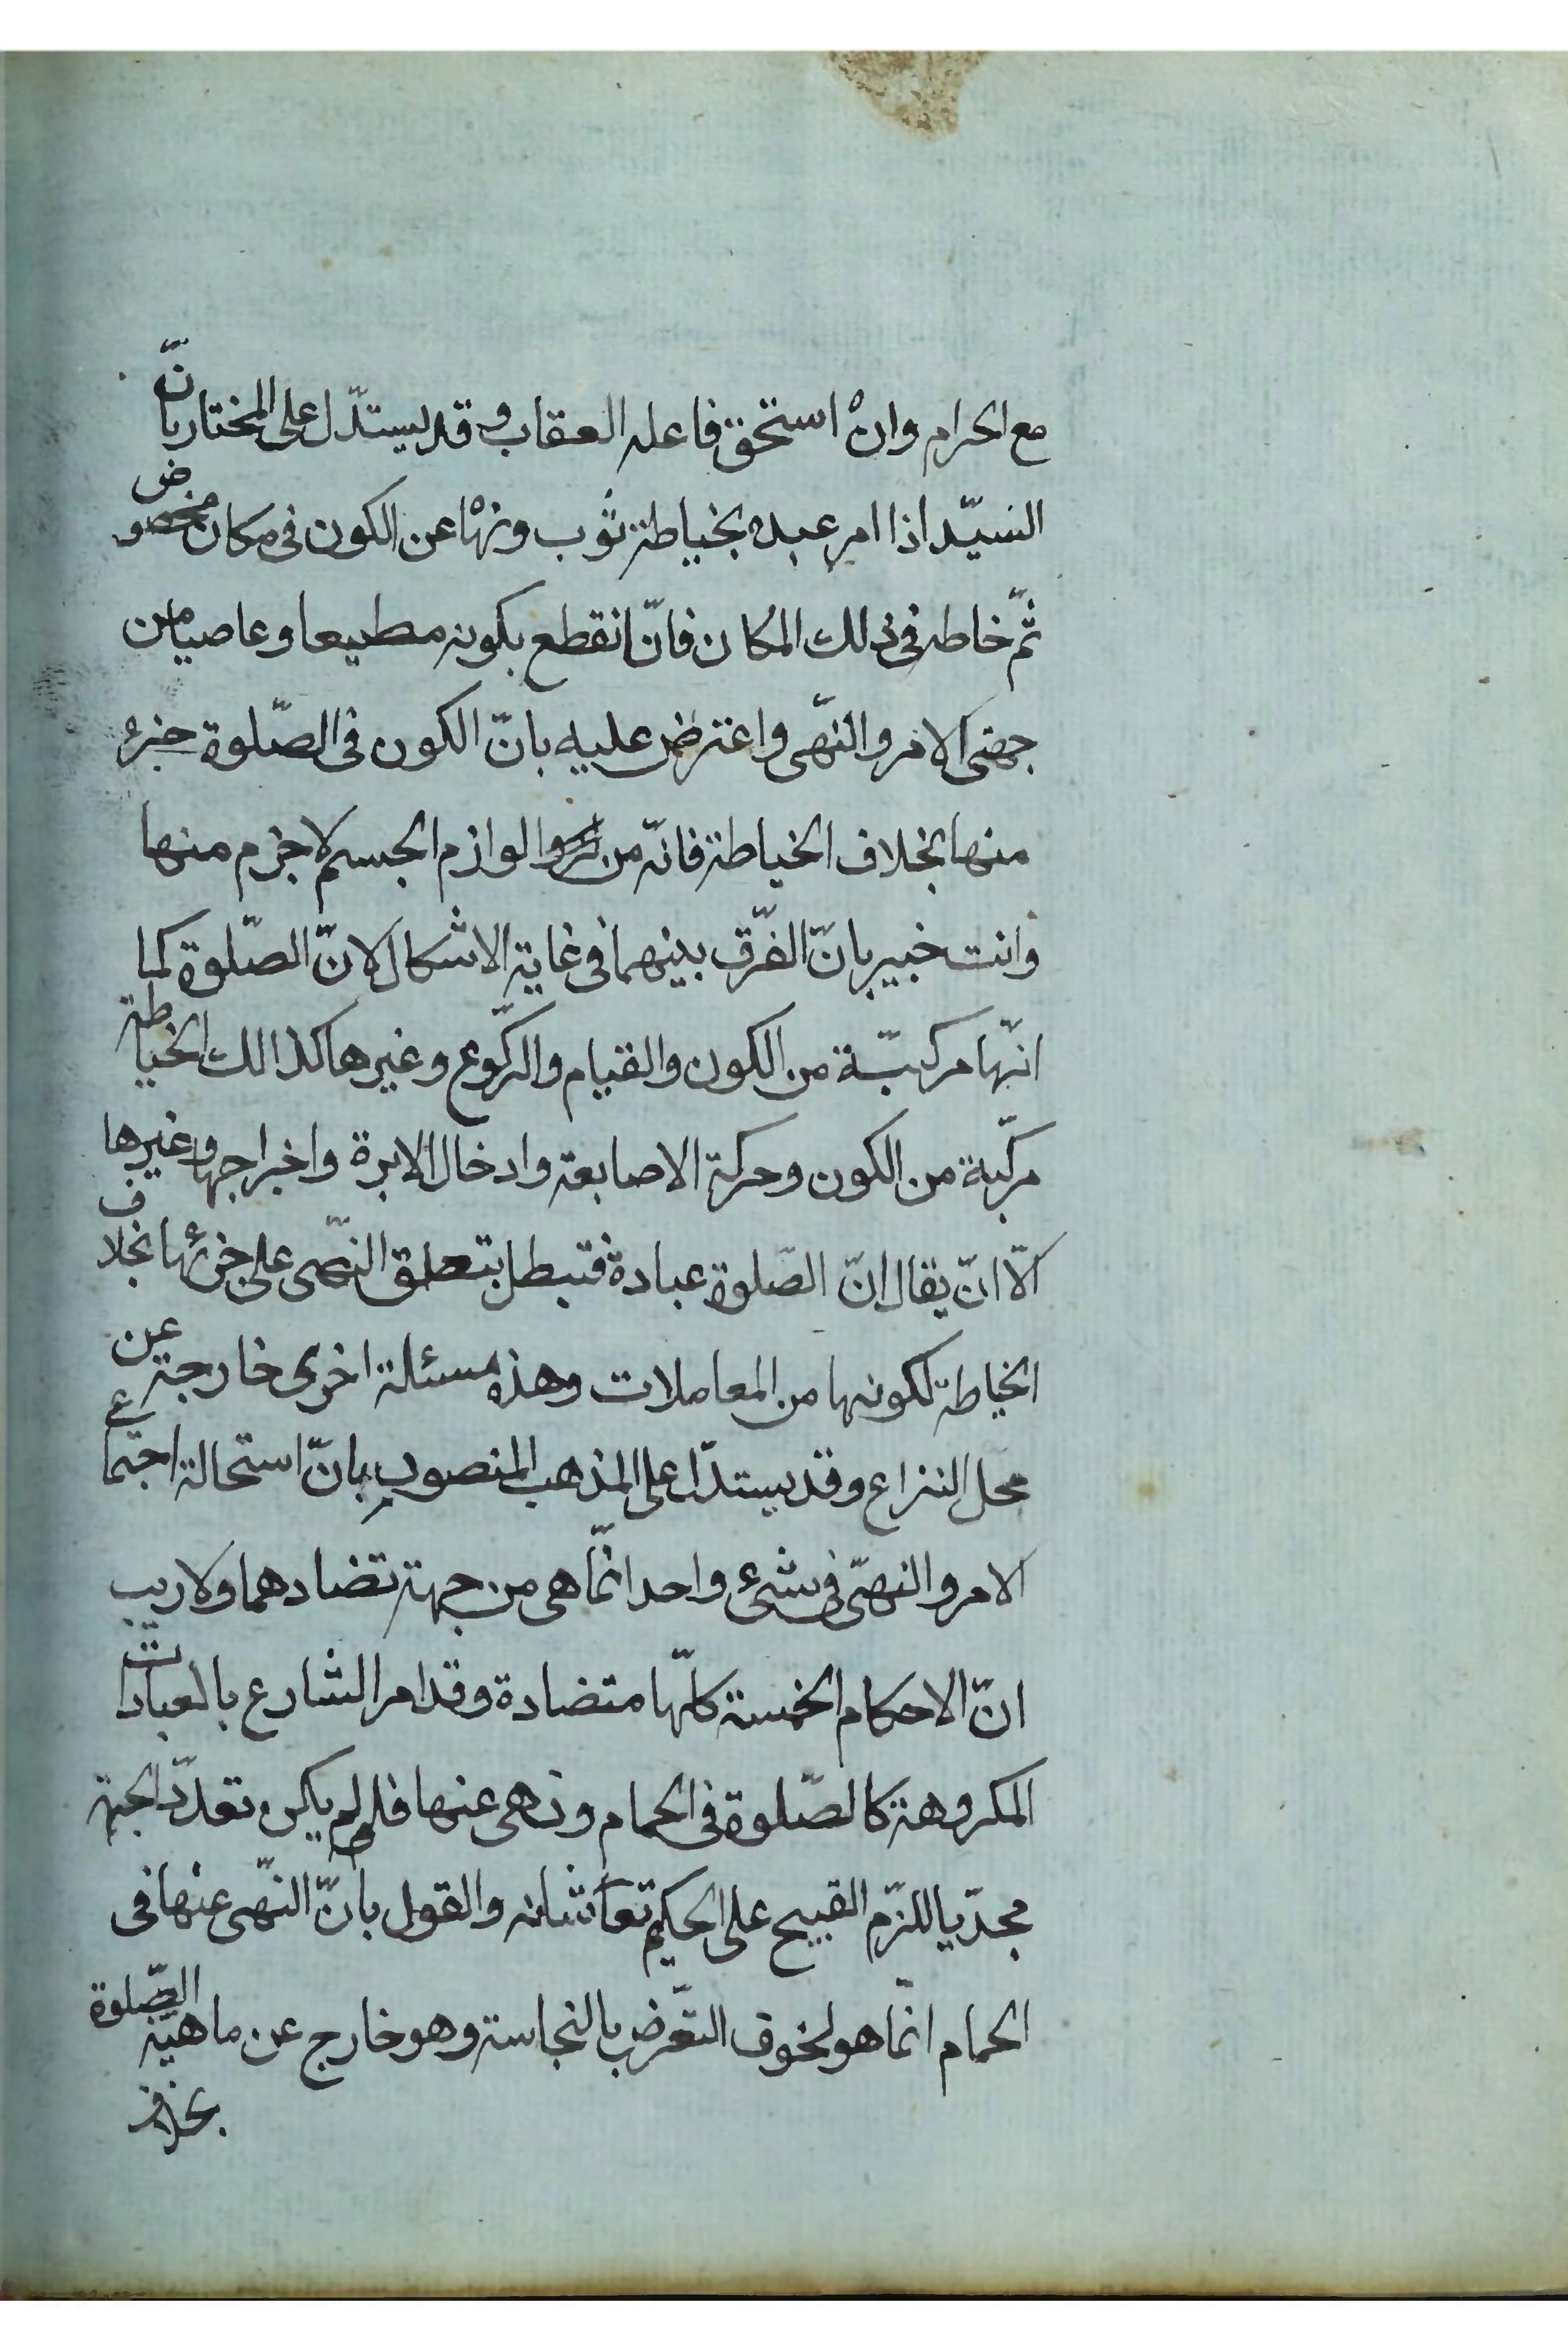 مع الحرام وانْ استحق فاعله العقاب و قد يستدّل على المختار بانّ
السّيد اذا امر عبده بخياطة ثوب ونهٰا عن الكون فى مكان مخصوص
ثمّ خاطه فى ذلك المكان فانّا نقطع بكونه مطيعا و عاصيا من
جهتى الامر والنّهى واعترض عليه بانّ الكون فى الصّلوة جزء
منها بخلاف الخياطة فانّه من لوازم الجسم لا جزء منها
وانت خبير بانّ الفرّق بينهما فى غاية الاشكال لانّ الصّلوة كما
انّها مركبّة من الكون والقيام والرّكوع وغيرها كذالك الخياطة
مركّبة من الكون وحركة الاصابعة وادخال الابرة واخراجها وغيرها
الّا انّ يقال انّ الصّلوة عبادة فتبطل بتعلق النّهى على جزئها بخلاف
الخياطة لكونها من المعاملات وهذه مسئلة اخرى خارجة عن
محل النزاع وقد يستدّل على المذهب المنصور بانّ استحالة اجتماع
الامر والنهىّ فى شىء واحد انّما هى من جهة تضادهما ولا ريب
انّ الاحكام الخمسة كلّها متضادة وقد امر الشارع بالعبادات
المكروهة كالصّلوة فى الحمام ونهى عنها فلو لم يكن تعدّد الجهة
مجدّيا للزّم القبيح على الحكيم تعا شانه والقول بانّ النّهى عنها فى
الحمام انّما هو لخوف التعّرض بالنجاسة وهو خارج عن ماهيّة الصّلوة